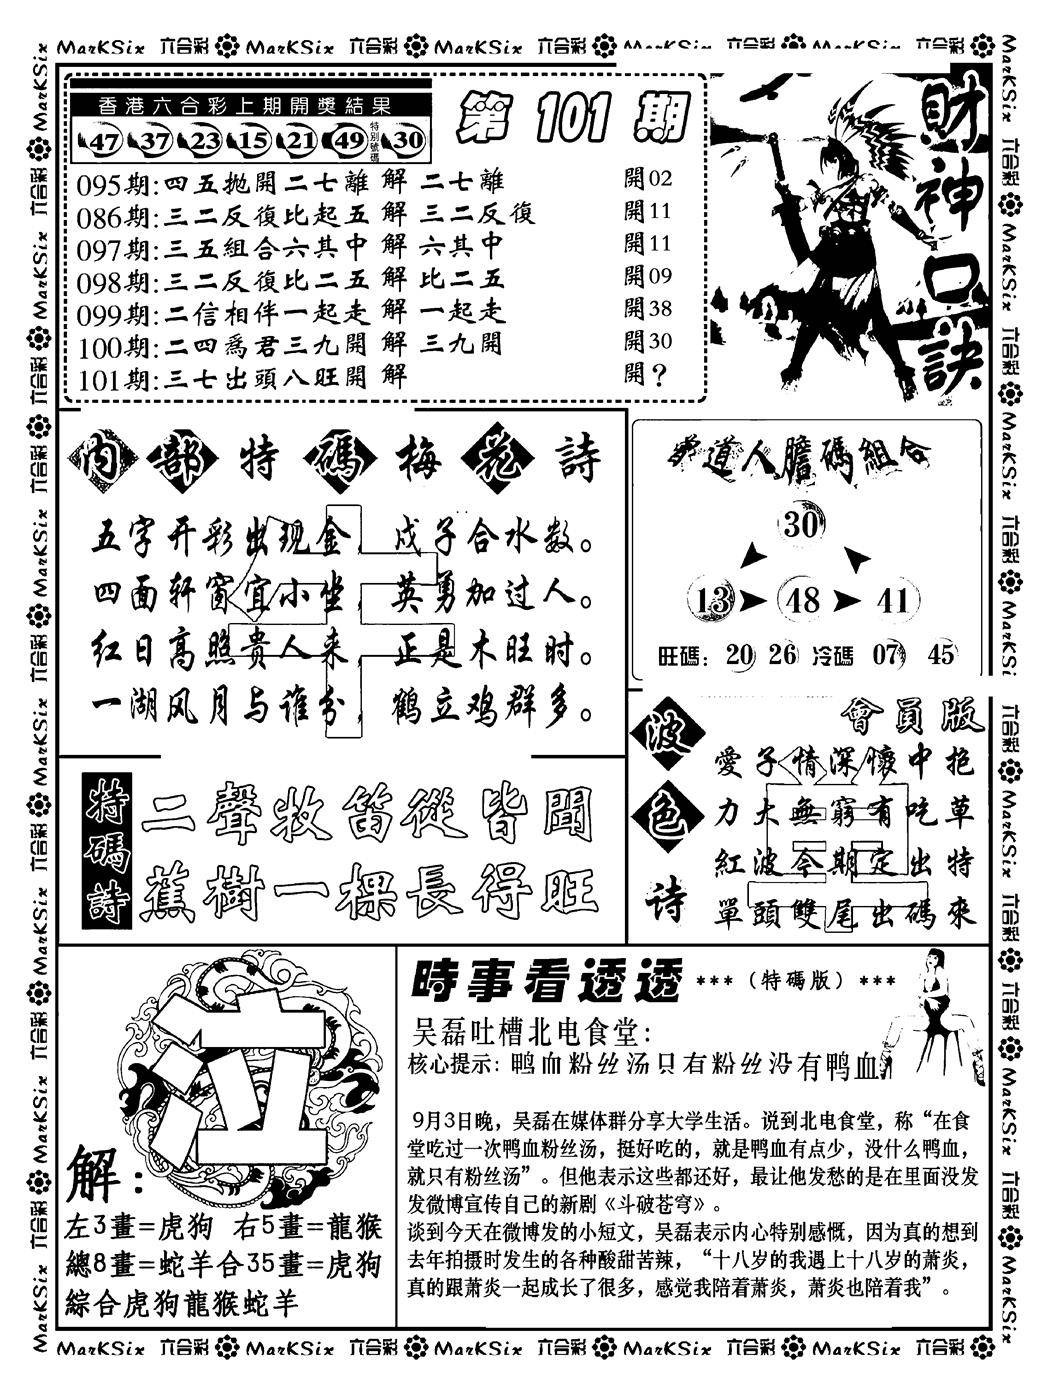 MarKSix 六合彩 MarKSix 六合彩 MarKSix 六合彩 MarKSix 六合彩 MarKSix 六合彩
香港六合彩上期開獎結果
47 37 23 15 21 49 特別號碼 30
第 101 期
095期:四五拋開二七離 解 二七離 開02
086期:三二反復比起五 解 三二反復 開11
097期:三五組合六其中 解 六其中 開11
098期:三二反復比二五 解 比二五 開09
099期:二信相伴一起走 解 一起走 開38
100期:二四爲君三九開 解 三九開 開30
101期:三七出頭八旺開 解 開?
財神口訣
內部特碼梅花詩
五字开彩出现金，戊子合水数。
四面轩窗宜小坐，英勇加过人。
红日高照贵人来，正是木旺时。
一湖风月与谁分，鹤立鸡群多。
道人膽碼組合
30
13 48 41
旺碼: 20 26 冷碼 07 45
波色诗
會員版
愛子情深懷中抱
力大無窮有吃草
紅波今期定出特
單頭雙尾出碼來
特碼詩
二聲牧笛從皆聞
蕉樹一棵長得旺
解:
左3畫=虎狗 右5畫=龍猴
總8畫=蛇羊合35畫=虎狗
綜合虎狗龍猴蛇羊
時事看透透 ***（特碼版）***
吴磊吐槽北电食堂:
核心提示: 鸭血粉丝汤只有粉丝没有鸭血
9月3日晚，吴磊在媒体群分享大学生活。说到北电食堂，称“在食
堂吃过一次鸭血粉丝汤，挺好吃的，就是鸭血有点少，没什么鸭血，
就只有粉丝汤”。但他表示这些都还好，最让他发愁的是在里面没发
发微博宣传自己的新剧《斗破苍穹》。
谈到今天在微博发的小短文，吴磊表示内心特别感慨，因为真的想到
去年拍摄时发生的各种酸甜苦辣，“十八岁的我遇上十八岁的萧炎，
真的跟萧炎一起成长了很多，感觉我陪着萧炎，萧炎也陪着我”。
MarKSix 六合彩 MarKSix 六合彩 MarKSix 六合彩 MarKSix 六合彩 MarKSix 六合彩